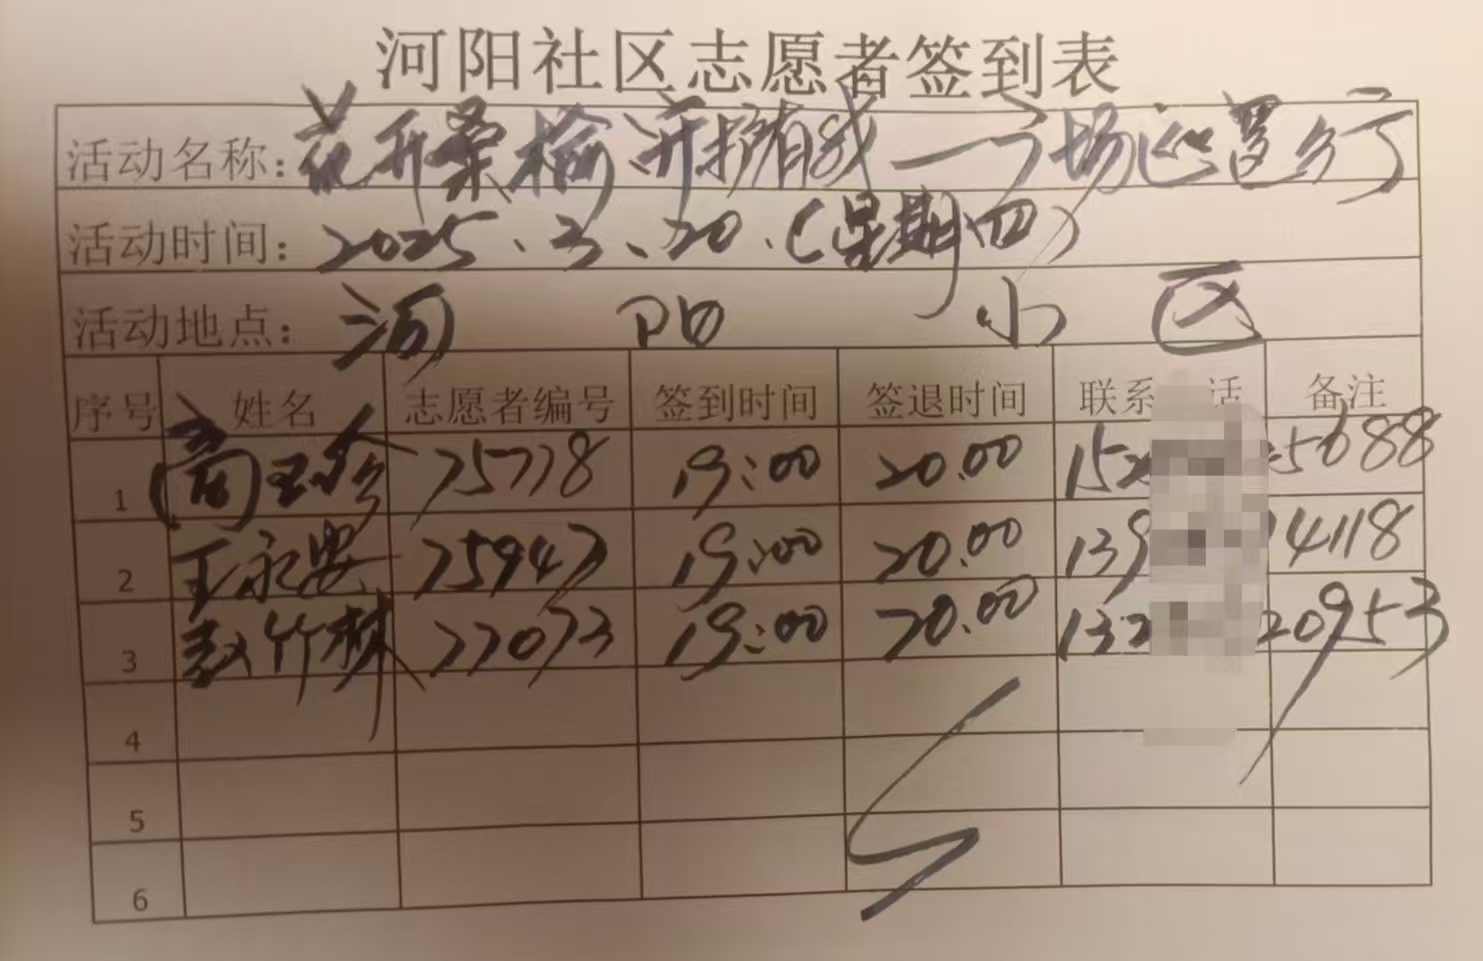 河阳社区志愿者签到表
活动名称：花开桑榆 养护有我 一广场巡逻行
活动时间：2025.3.20.（星期四）
活动地点：河阳小区
序号 姓名 志愿者编号 签到时间 签退时间 联系 话 备注
1 玉珍 75778 19:00 20.00 152 5688
2 王永安 75947 19:00 20.00 139 4118
3 赵竹林 77073 19:00 20.00 132 20953
4
5
6